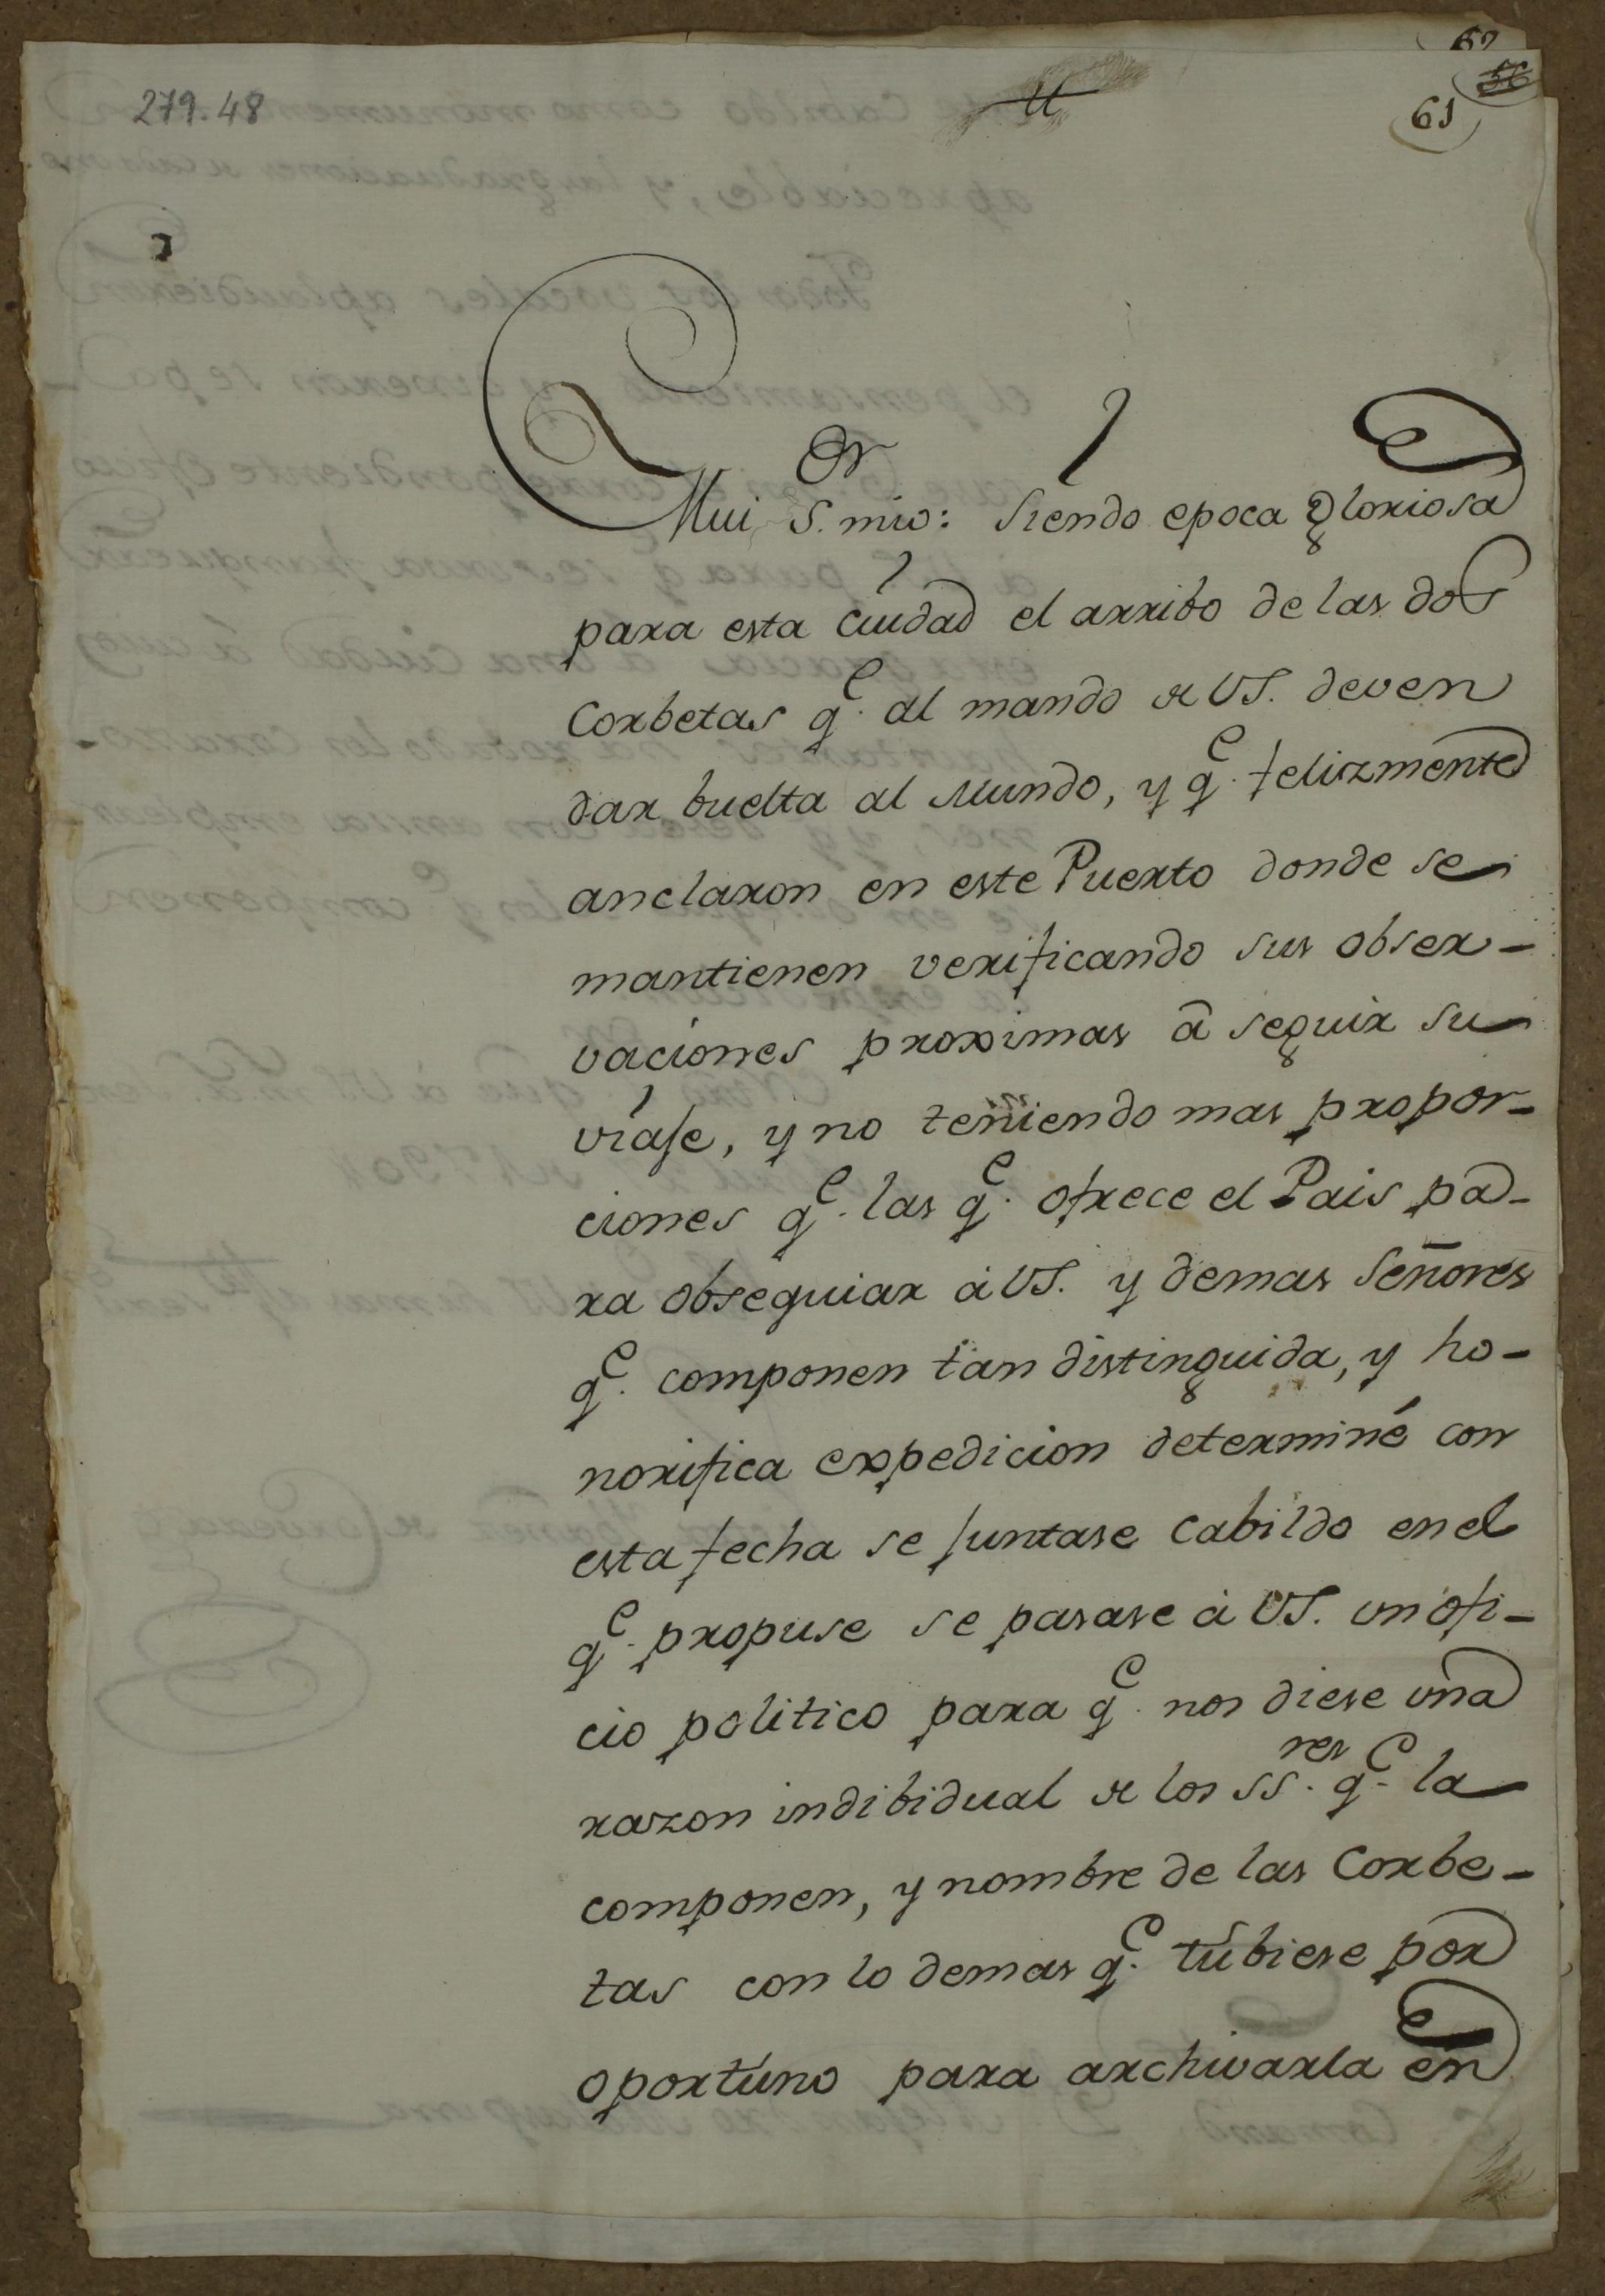 62
56
61
279.48
11
Mui S.or mio: Siendo epoca Gloriosa
para esta Ciudad el arribo de las dos
Corbetas q.e al mando de VS. deven
dar buelta al Mundo, y q.e felizmente
anclaron en este Puerto donde se
mantienen verificando sus obser-
vaciones proximas â seguir su
viaje, y no teniendo mas propor-
ciones q.e las q.e ofrece el Pais pa-
ra obsequiar à VS. y demas Señores
q.e componen tan distinguida, y ho-
norifica expedicion determiné con
esta fecha se juntase Cabildo en el
q.e propuse se pasase à VS. un ofi-
cio politico para q.e nos diese una
razon indibidual de los SS.res q.e la
componen, y nombre de las Corbe-
tas con lo demas q.e tubiese por
oportuno para archivarla en